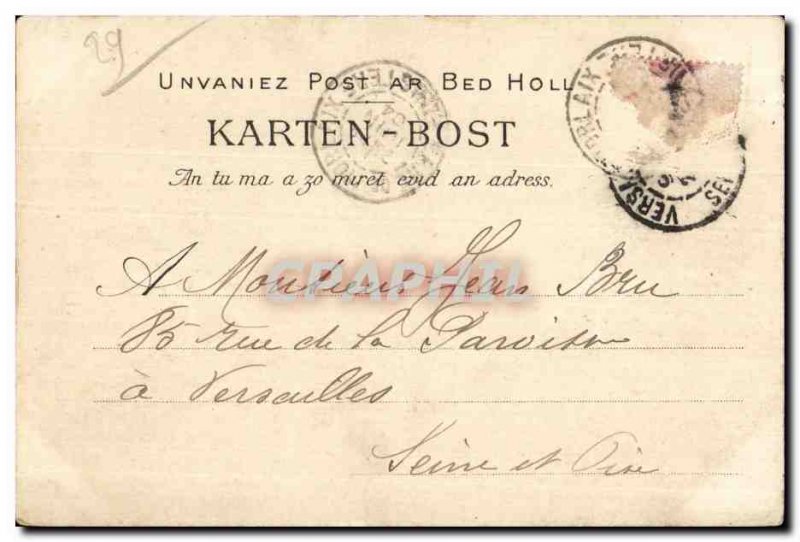 29
UNVANIEZ POST AR BED HOLL
KARTEN-BOST
An tu ma a zo miret evid an adress.
CPAPHIL
A Monsieur Jean Bru
85 rue de la Paroisse
à Versailles
Seine et Oise
MORLAIX
VERS
SEI